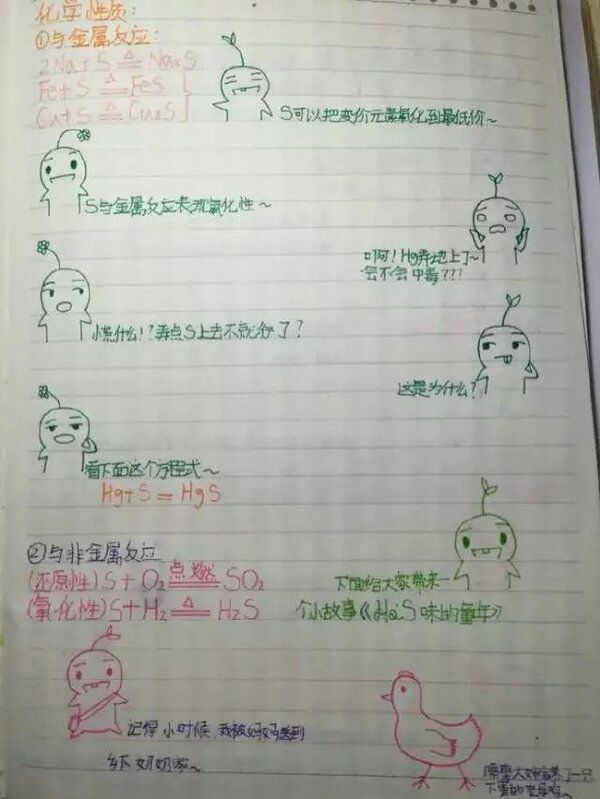 化学性质：
①与金属反应：
2Na+S ≜ Na₂S
Fe+S ≜ FeS
Cu+S ≜ Cu₂S
S可以把变价元素氧化到最低价～
S与金属反应表现氧化性～
啊！Hg弄地上了～
会不会中毒???
慌什么!?弄点S上去不就行了?
这是为什么?
看下面这个方程式～
Hg+S=HgS
②与非金属反应
(还原性)S+O₂ 点燃 SO₂
(氧化性)S+H₂ ≜ H₂S
下面给大家带来一
个小故事《H₂S味的童年》
记得小时候,我被妈妈送到
乡下奶奶家～
隔壁大婶家养了一只
下蛋的老母鸡～